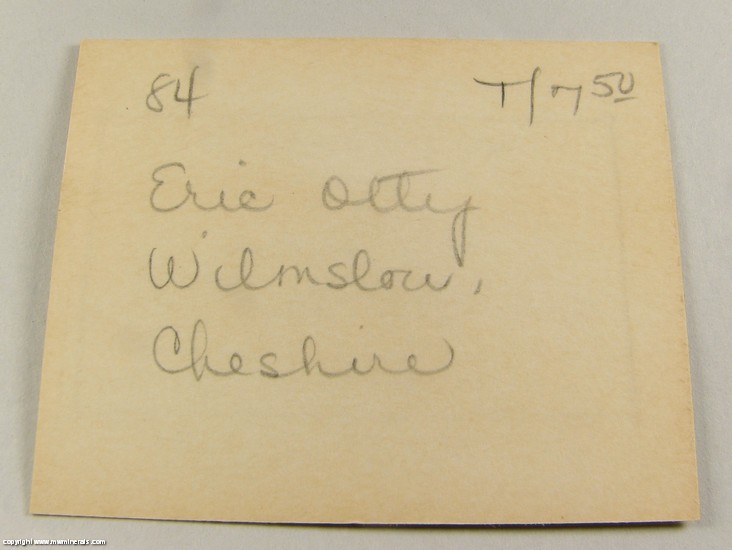 84 T/750
Eric Otty
Wilmslow,
Cheshire
copyright www.mwminerals.com